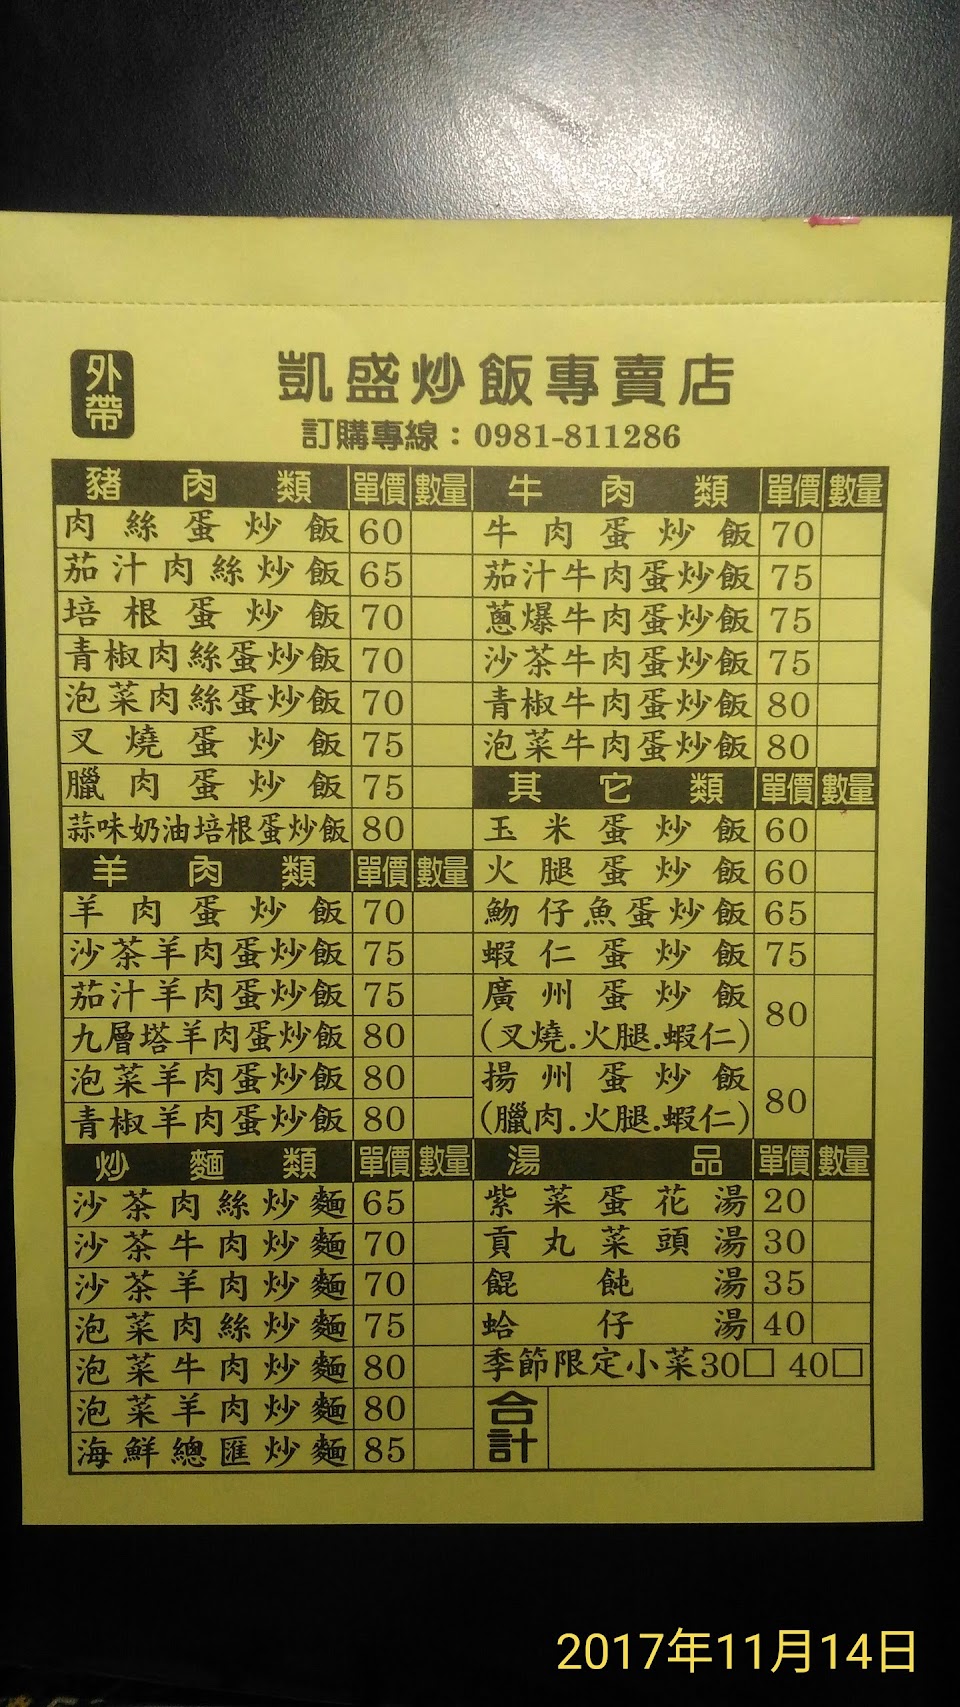 外帶
凱盛炒飯專賣店
訂購專線：0981-811286
豬肉類 單價 數量
肉絲蛋炒飯 60
茄汁肉絲炒飯 65
培根蛋炒飯 70
青椒肉絲蛋炒飯 70
泡菜肉絲蛋炒飯 70
叉燒蛋炒飯 75
臘肉蛋炒飯 75
蒜味奶油培根蛋炒飯 80
羊肉類 單價 數量
羊肉蛋炒飯 70
沙茶羊肉蛋炒飯 75
茄汁羊肉蛋炒飯 75
九層塔羊肉蛋炒飯 80
泡菜羊肉蛋炒飯 80
青椒羊肉蛋炒飯 80
炒麵類 單價 數量
沙茶肉絲炒麵 65
沙茶牛肉炒麵 70
沙茶羊肉炒麵 70
泡菜肉絲炒麵 75
泡菜牛肉炒麵 80
泡菜羊肉炒麵 80
海鮮總匯炒麵 85
牛肉類 單價 數量
牛肉蛋炒飯 70
茄汁牛肉蛋炒飯 75
蔥爆牛肉蛋炒飯 75
沙茶牛肉蛋炒飯 75
青椒牛肉蛋炒飯 80
泡菜牛肉蛋炒飯 80
其它類 單價 數量
玉米蛋炒飯 60
火腿蛋炒飯 60
魩仔魚蛋炒飯 65
蝦仁蛋炒飯 75
廣州蛋炒飯 80
(叉燒.火腿.蝦仁)
揚州蛋炒飯 80
(臘肉.火腿.蝦仁)
湯品 單價 數量
紫菜蛋花湯 20
貢丸菜頭湯 30
餛飩湯 35
蛤仔湯 40
季節限定小菜30□ 40□
合計
2017年11月14日